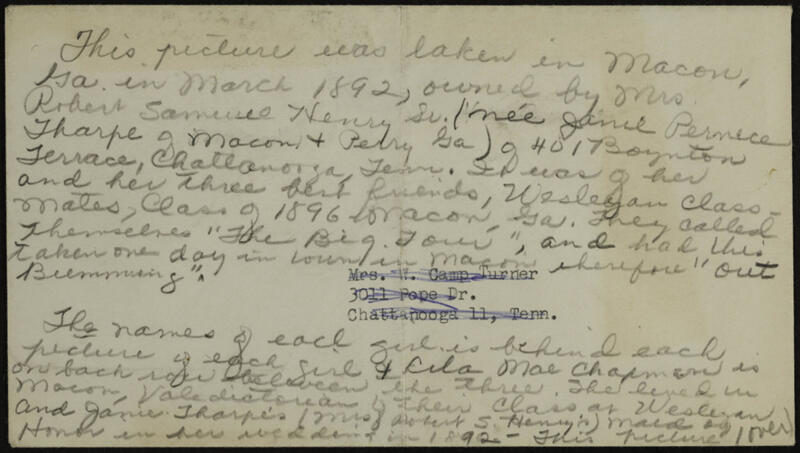 This picture was taken in Macon,
Ga. in March 1892, owned by Mrs.
Robert Samuel Henry Sr. (née Janie Pernece
Tharpe of Macon & Perry Ga) of 401 Boynton
Terrace, Chattanooga, Tenn. It was of her
and her three best friends, Wesleyan Class-
mates, Class of 1896 Macon, Ga. They called
themselves "The Big Four", and had this
taken one day in town in Macon therefore "out
Bumming".
Mrs. W. Camp Turner
3011 Pope Dr.
Chattanooga 11, Tenn.
The names of each girl is behind each
picture of each girl & Lila Mae Chapman is
on back row between the three. She lived in
Macon, Valedictorian of their Class at Wesleyan
and Janie Tharpe's (Mrs. Robert S. Henry's) Maid of
Honor in her wedding in 1892 - This picture (over)